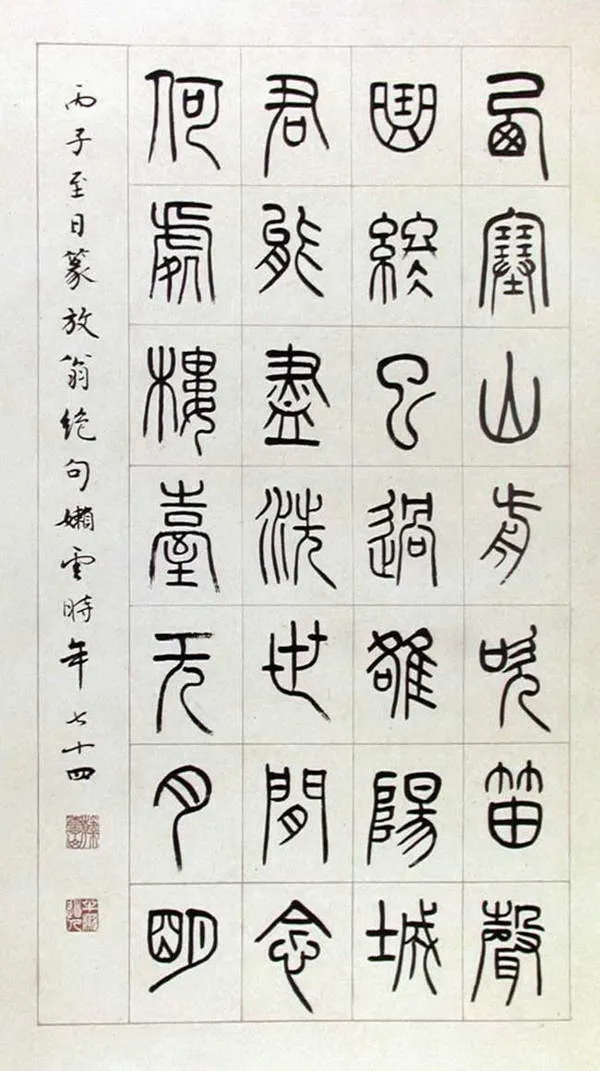 西塞山前吹笛聲
曲終已過雒陽城
君能盡洗世閒念
何處樓臺无月明
丙子至日篆放翁絶句嬾雲時年七十四